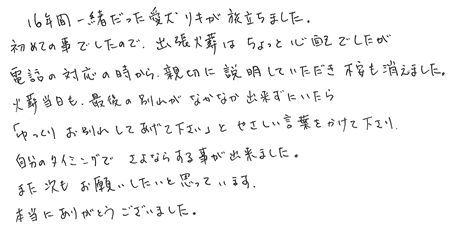 16年間一緒だった愛犬リキが旅立ちました。
初めての事でしたので、出張火葬はちょっと心配でしたが
電話の対応の時から、親切に説明していただき不安も消えました。
火葬当日も、最後の別れがなかなか出来ずにいたら
「ゆっくりお別れしてあげて下さい」とやさしい言葉をかけて下さり、
自分のタイミングでさよならする事が出来ました。
また次もお願いしたいと思っています。
本当にありがとうございました。